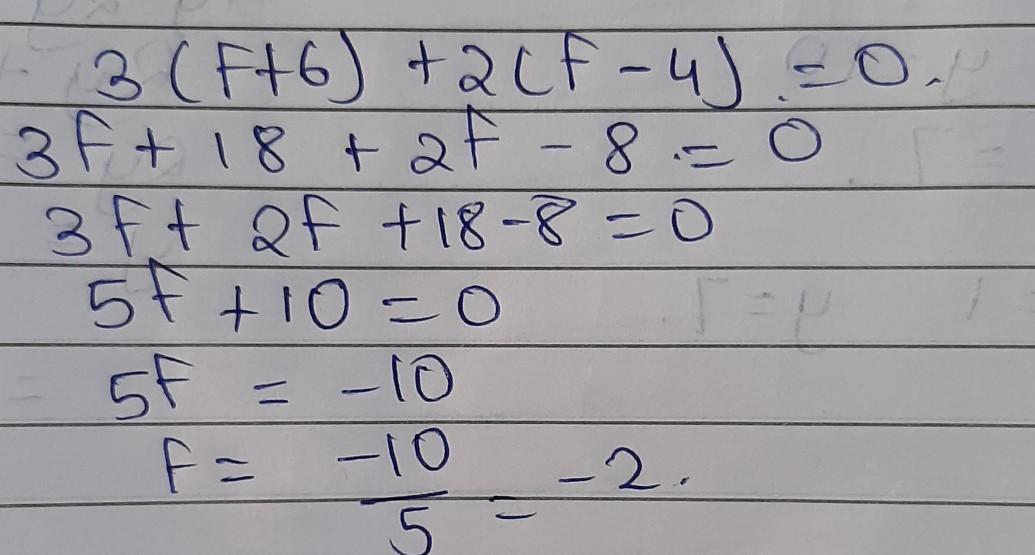 3(F+6) +2(F-4) =0.
3F+18 + 2F - 8 = 0
3F+ 2F +18-8=0
5F +10=0
5F = -10
F= -10/5 = -2.